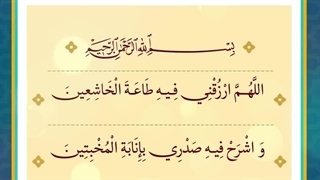 بِسْمِ اللهِ الرَّحْمٰنِ الرَّحِيْمِ
اللَّهُمَّ ارْزُقْنِي فِيهِ طَاعَةَ الْخَاشِعِينَ
وَ اشْرَحْ فِيهِ صَدْرِي بِإِنَابَةِ الْمُخْبِتِينَ